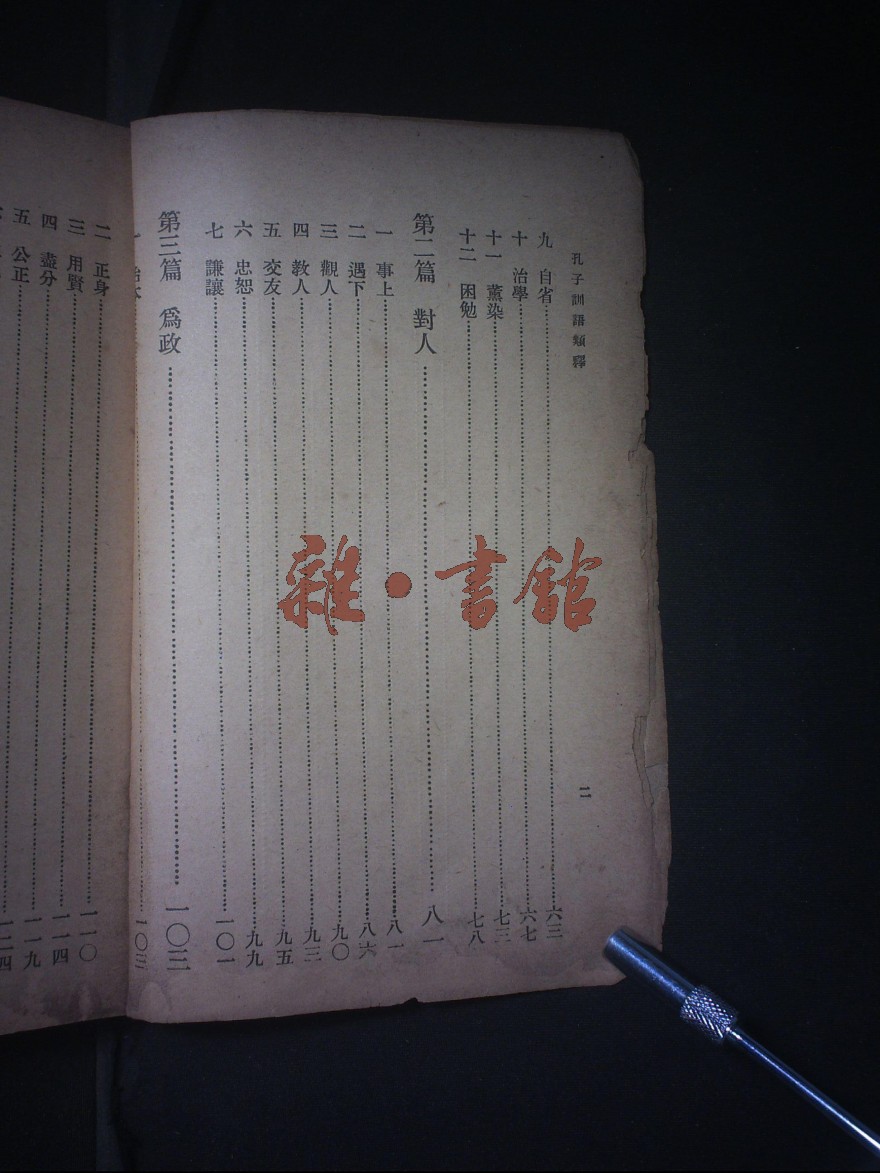 孔子訓語類釋
二
九 自省 六三
十 治學 六七
十一 薰染 七三
十二 困勉 七八
第二篇 對人 八一
一 事上 八一
二 遇下 八六
三 觀人 九〇
四 教人 九三
五 交友 九五
六 忠恕 九九
七 謙讓 一〇一
第三篇 爲政 一〇三
一 一〇三
二 正身 一一〇
三 用賢 一一四
四 盡分 一一九
五 公正 一二四
雜·書館